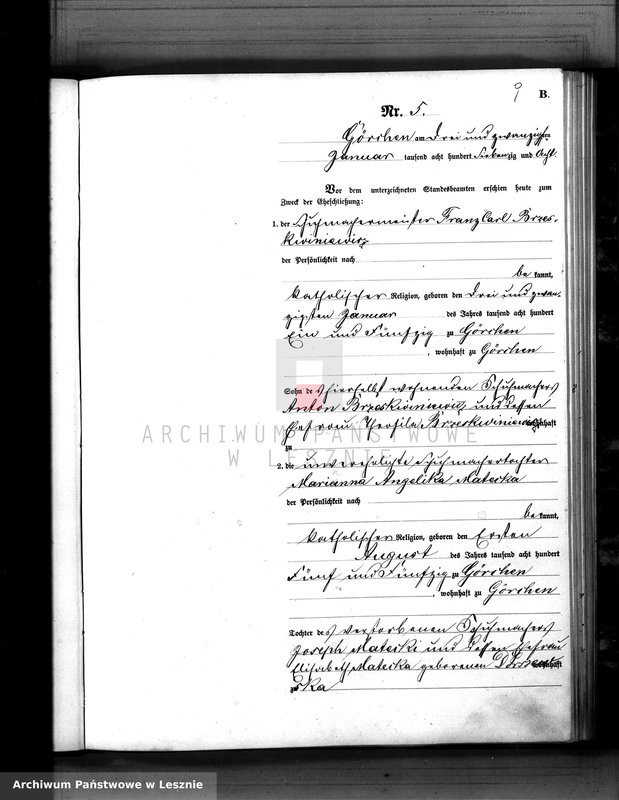 9 B.
Nr. 5.
Görchen am drei und zwanzigsten
Januar tausend acht hundert siebenzig und acht.
Vor dem unterzeichneten Standesbeamten erschien heute zum
Zweck der Eheschließung:
1. der Schuhmachermeister Franz Carl Brzes-
kwiniewicz
der Persönlichkeit nach
be kannt,
katholischer Religion, geboren den drei und zwan-
zigsten Januar des Jahres tausend acht hundert
Ein und Fünfzig zu Görchen
, wohnhaft zu Görchen
Sohn des hierselbst wohnenden Schuhmachers
Anton Brzeskwiniewicz und dessen
Ehefrau Theophila Brzeskwiniewicz wohnhaft
ARCHIWUM PAŃSTWOWE
W LESZNIE
zu
2. die unverehelichte Schuhmachertochter
Marianna Angelika Materka
der Persönlichkeit nach
be kannt,
katholischer Religion, geboren den Ersten
August des Jahres tausend acht hundert
Fünf und Fünfzig zu Görchen
, wohnhaft zu Görchen
Tochter des verstorbenen Schuhmachers
Joseph Materki und dessen Ehefrau
Elisabeth Materka geborenen wohnhaft
zu
Archiwum Państwowe w Lesznie